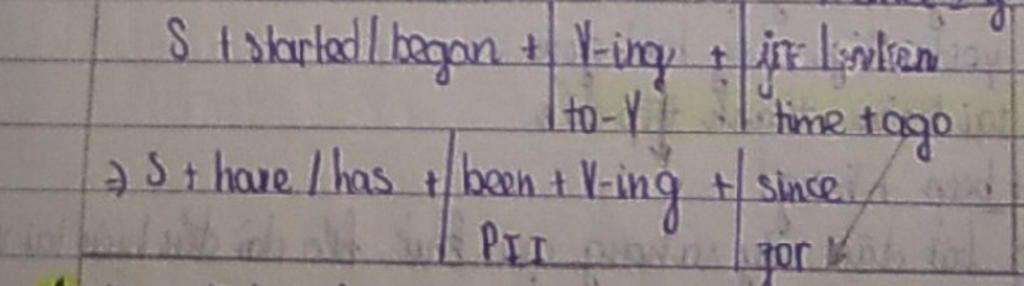 S + started / began + | V-ing + | in / when
to-V | time + ago
⇒ S + have / has + | been + V-ing + | since
PII | for